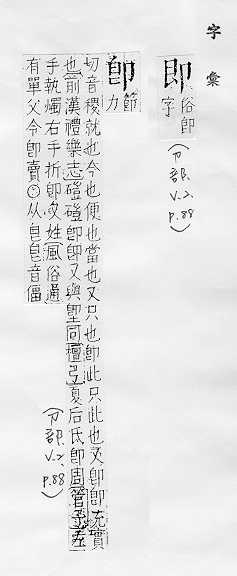 字彙
即 俗卽字
(卩部. V.2. P.88)
卽 節力
切音稷就也今也便也當也又只也卽此只此也又卽卽充實
也前漢禮樂志磑磑卽卽又與堲同檀弓夏后氏卽周管子左
手執燭右手折卽又姓風俗通
有單父令卽賣〇从皀皀音偪
(卩部. V.2. p.88)